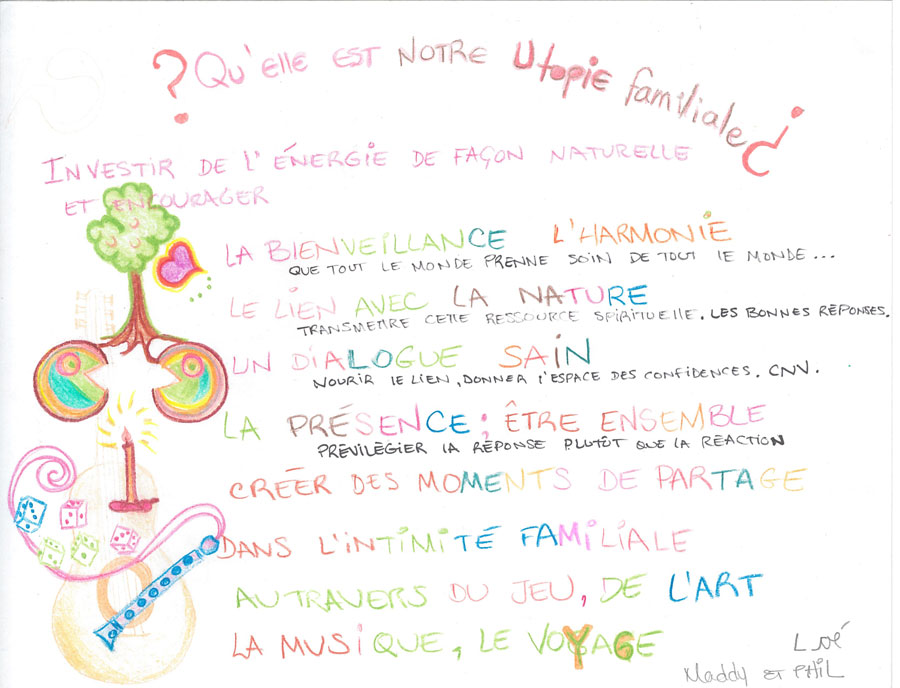 ? Qu'elle est notre Utopie familiale ?
Investir de l'énergie de façon naturelle
et encourager
La bienveillance l'harmonie
que tout le monde prenne soin de tout le monde...
Le lien avec la nature
transmettre cette ressource spirituelle. Les bonnes réponses.
Un dialogue sain
nourir le lien, donner l'espace des confidences. CNV.
La présence ; être ensemble
prévilégier la réponse plutôt que la réaction
Créer des moments de partage
dans l'intimité familiale
autravers du jeu, de l'art
la musique, le voyage
Loé
Maddy et Phil